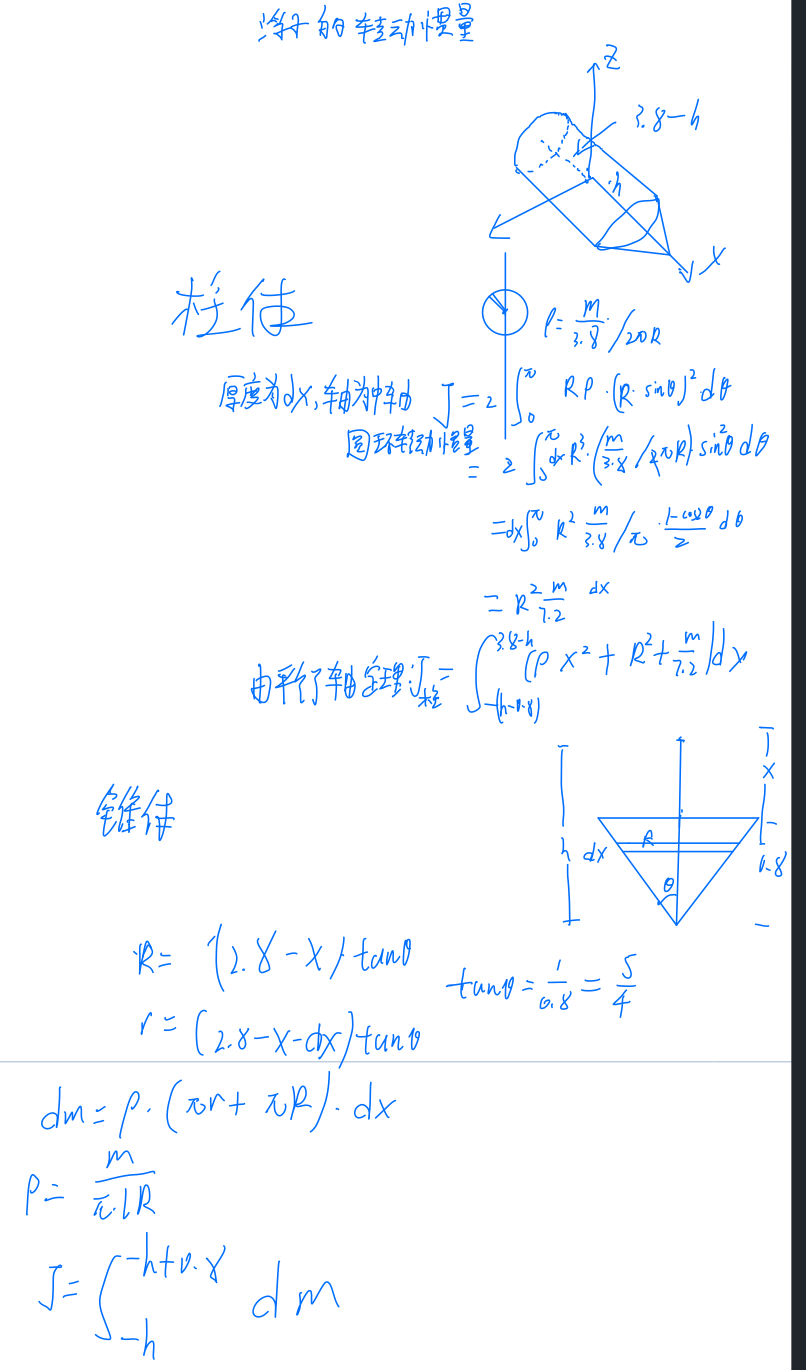 浮子的转动惯量
Z
3.8-h
h
X
柱体
ρ= m/3.8 /2πR
厚度为dx,轴为中轴 J=2∫₀^π Rρ·(R·sinθ)²dθ
圆环转动惯量
= 2∫₀^π dx R³·(m/3.8 /2πR)·sin²θ dθ
=dx∫₀^π R² m/3.8 /π · (1-cos2θ)/2 dθ
= R² m/7.2 dx
由平行轴定理:J柱= ∫_{-(h-0.8)}^{3.8-h} (ρx²+R²+m/7.2)dx
锥体
x
h dx R 0.8
θ
R= (2.8-x)·tanθ
tanθ= 1/0.8 = 5/4
r= (2.8-x-dx)tanθ
dm=ρ·(πr+πR)·dx
ρ= m/π·lR
J=∫_{-h}^{-h+0.8} dm